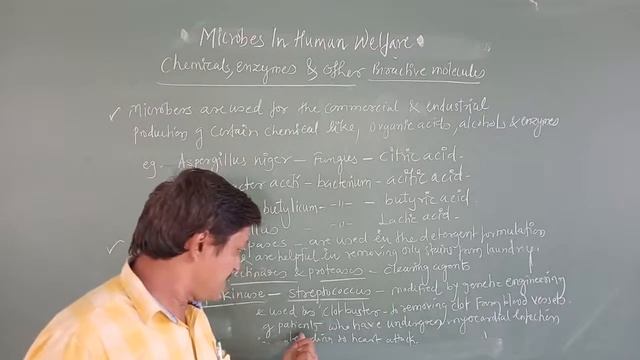 Microbes In Human Welfare
Chemicals, enzymes & other Bioactive molecules
✓ Microbers are used for the commercial & endustrial
production of Certain chemical like, organic acids, alcohols & enzymes
eg. - Aspergillus niger - Fungus - citric acid.
acter aceti - bacterium - acitic acid.
butylicum - -"- - butyric acid.
llus -"- Lactic acid.
✓ pases - are used in the detergent formulation
are helpful in removing oily stains from laundry.
ectinases & proteases - clearing agents
kinase - streptococcus - modified by genetic engineering
& used as 'clot buster' - to removing clot from blood vessels
of patients who have undergone myocardial infection
leading to heart attack.